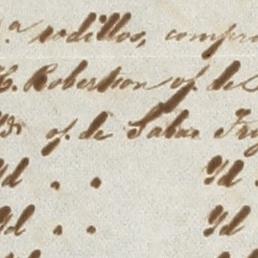 ª rodillos, compr
H. Robertson of. de
of. de Salas
Yd . . Yd
Yd . . Yd